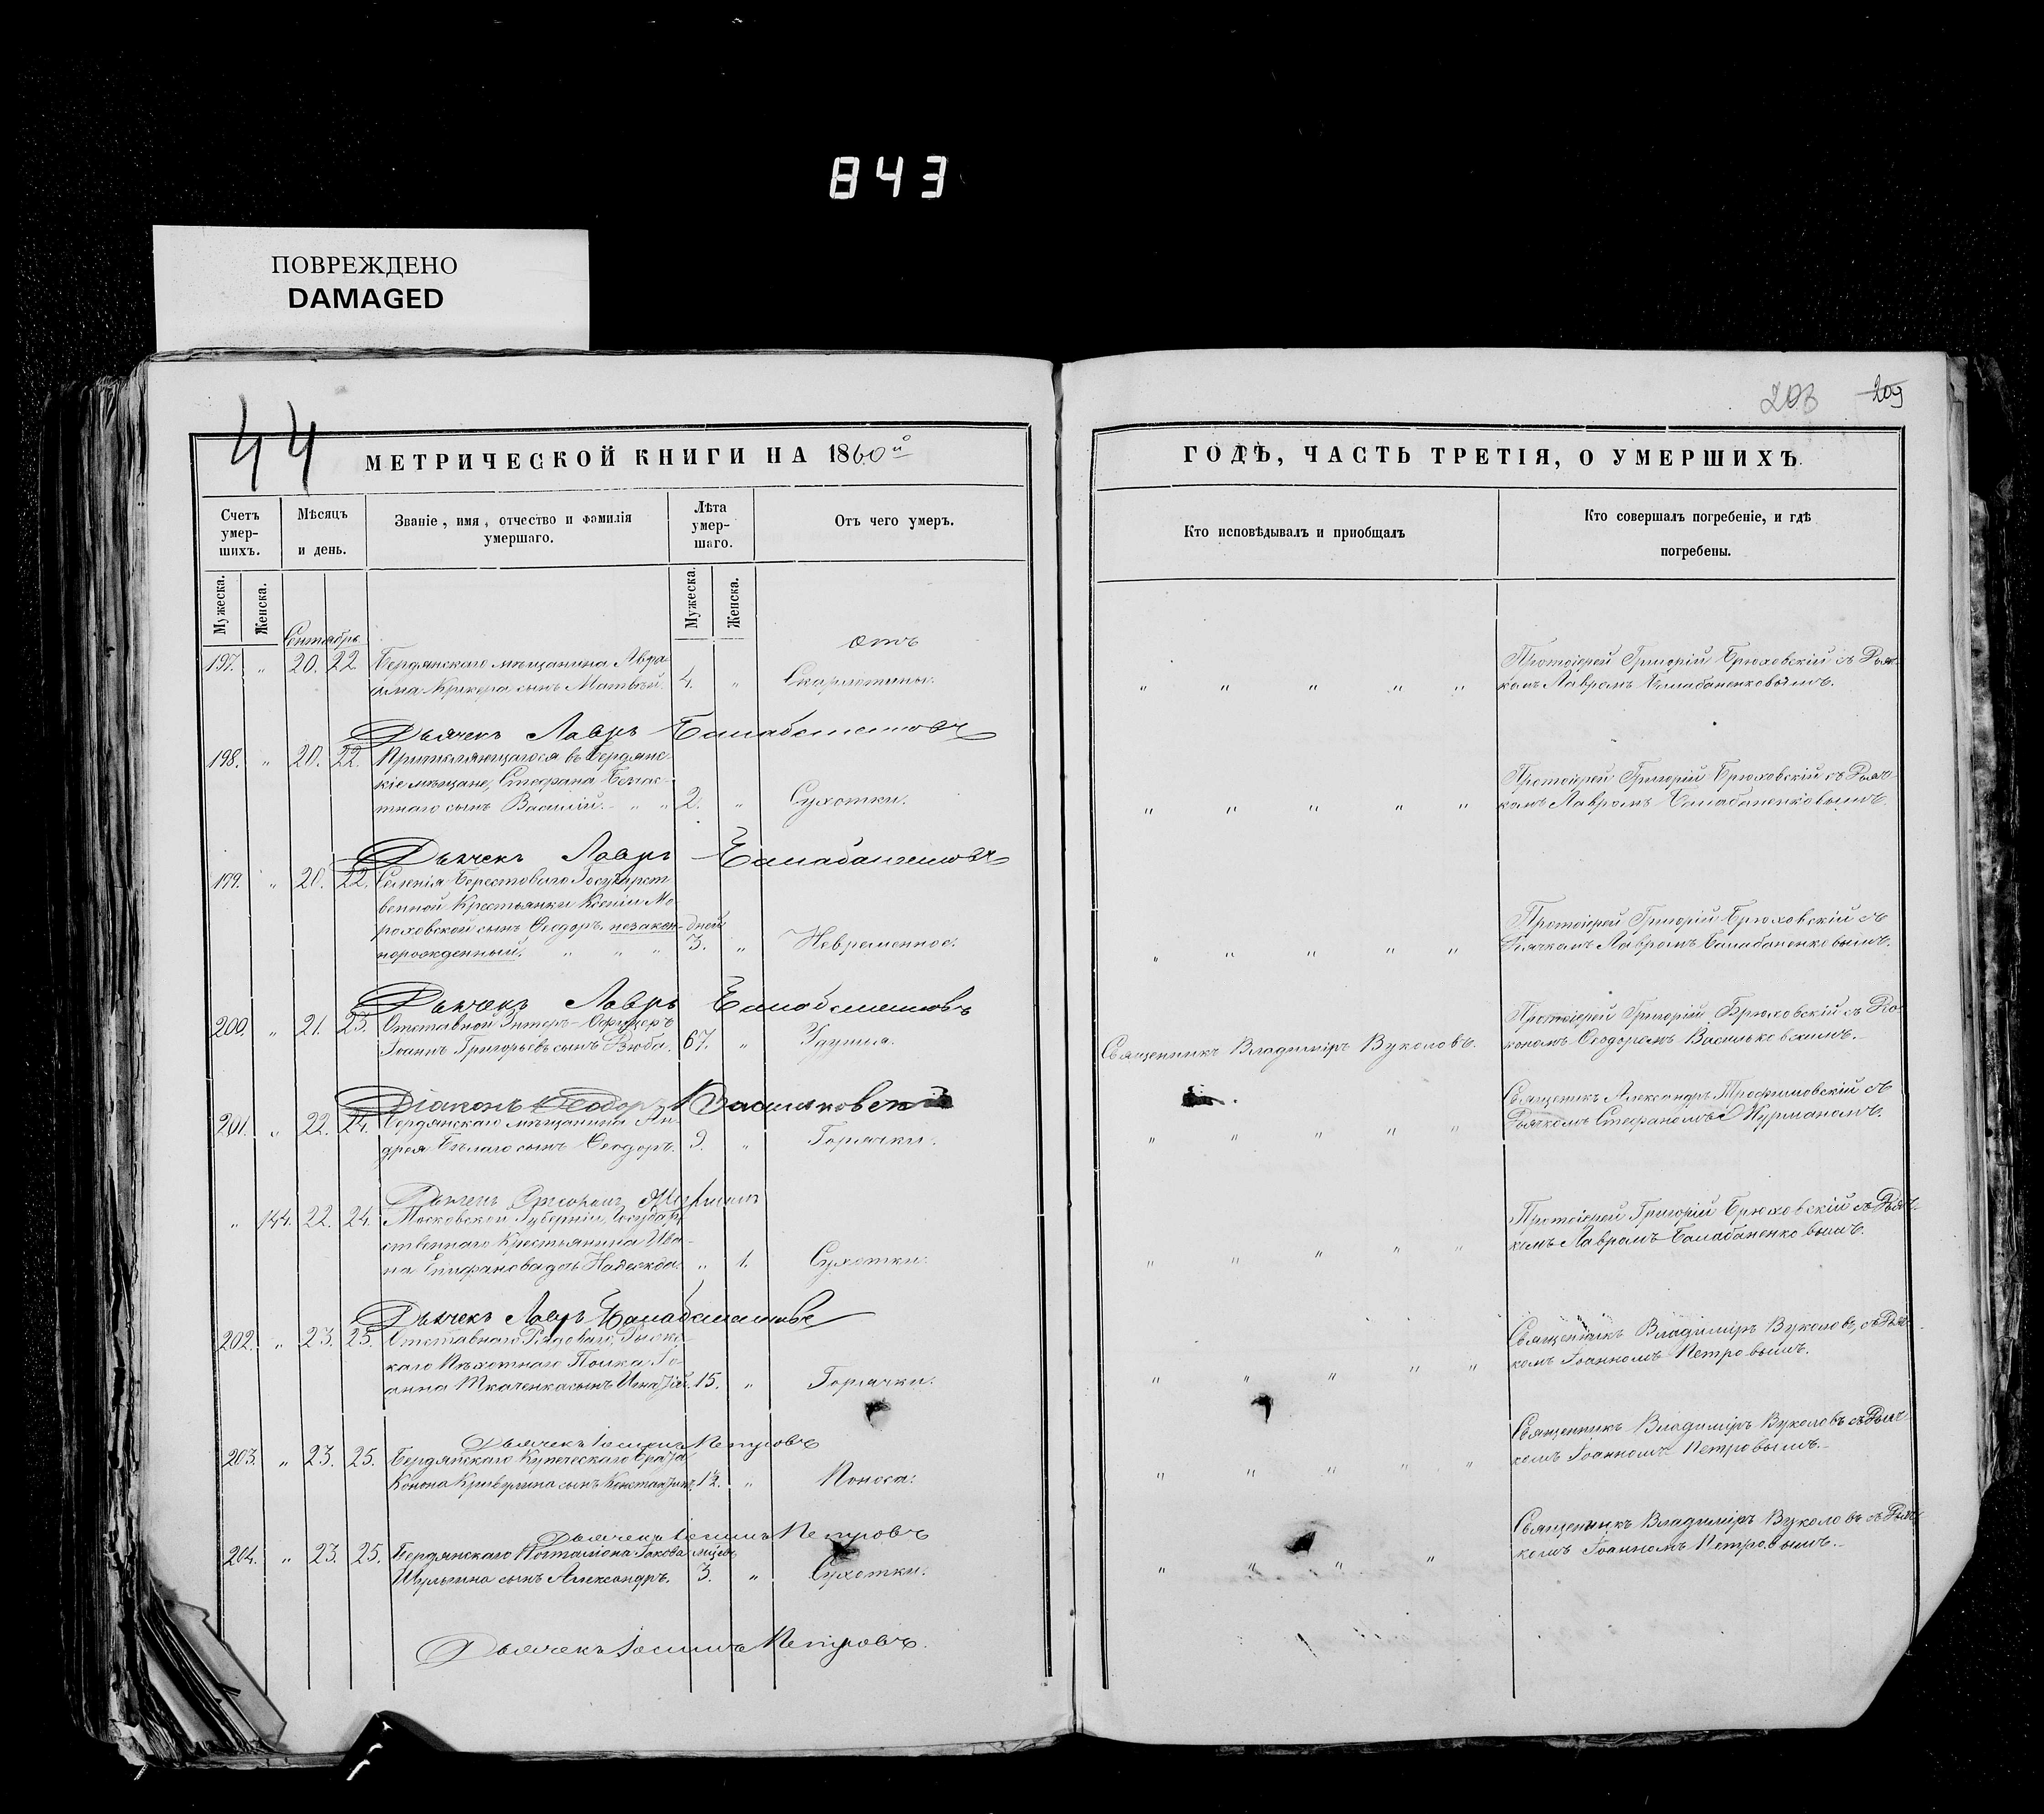 843
ПОВРЕЖДЕНО
DAMAGED
203 209
44
МЕТРИЧЕСКОЙ КНИГИ НА 1860й
ГОДЪ, ЧАСТЬ ТРЕТІЯ, О УМЕРШИХЪ.
Счетъ умер-шихъ.
Мѣсяцъ и день.
Званіе, имя, отчество и фамилія умершаго.
Лѣта умер-шаго.
Отъ чего умеръ.
Кто исповѣдывалъ и приобщалъ
Кто совершалъ погребеніе, и гдѣ погребены.
Мужеска.
Женска.
Мужеска.
Женска.
Сентябрь
отъ
197. " 20. 22 Бердянскаго мѣщанина Авра-
ама Крикера сынъ Матвѣй. 4. " Скарлатины.
" " " " "
Протоіерей Григорій Брюховскій съ Дьяч-
комъ Лавромъ Балабаненковымъ.
Дьячекъ Лавръ Балабаненковъ
198. " 20. 22. Причисляющагося въ Бердянс-
кіе мѣщане, Стефана
сынъ Василій. " " 2. " Сухотки.
" " " " "
Протоіерей Григорій Брюховскій съ Дьяч-
комъ Лавромъ Балабаненковымъ.
Дьячекъ Лавръ Балабаненковъ
199. " 20. 22. Селенія Берестоваго Государст-
венной Крестьянки Ксеніи Мо-
роховской сынъ Ѳеодоръ, незакон- дней
норожденный. " " " 3. " Невременное.
" " " " "
Протоіерей Григорій Брюховскій съ
Дьячкомъ Лавромъ Балабаненковымъ.
Дьячекъ Лавръ Балабаненковъ
200. " 21. 23. Отставной Унтеръ-Офицеръ
Іоаннъ Григорьевъ сынъ Вюба. 67. " Удушья.
Священникъ Владиміръ Вуколовъ.
Протоіерей Григорій Брюховскій съ Діа-
кономъ Ѳеодоромъ Васильковскимъ.
Діаконъ Ѳеодоръ Васильковскій
201. " 22. 24. Бердянскаго мѣщанина Ан-
дрея Бѣлаго сынъ Ѳеодоръ. 9. " Горячки.
" " " " "
Священникъ Александръ Трофимовскій съ
Дьячкомъ Стефаномъ Журманомъ.
Дьячекъ Стефанъ Журманъ
" 144. 22. 24. Московской Губерніи, Государ-
ственнаго Крестьянина Ива-
на Епифанова дочь Надежда. " 1. Сухотки.
" " " " "
Протоіерей Григорій Брюховскій съ Дьяч-
комъ Лавромъ Балабаненковымъ.
Дьячекъ Лавръ Балабаненковъ
202. " 23. 25. Отставнаго Рядоваго,
каго Пѣхотнаго Полка Іо-
анна Ткаченка сынъ Игнатій. 15. " Горячки.
" " " " "
Священникъ Владиміръ Вуколовъ, съ Дьяч-
комъ Іоанномъ Петровымъ.
Дьячекъ Іоаннъ Петровъ
203. " 23. 25. Бердянскаго Купеческаго брата
Конона сынъ Константинъ. 1½. " Поноса.
" " " " "
Священникъ Владиміръ Вуколовъ съ Дьяч-
комъ Іоанномъ Петровымъ.
Дьячекъ Іоаннъ Петровъ
204. " 23. 25. Бердянскаго Почталіона Іакова мѣсяц.
Шульгина сынъ Александръ. 3. " Сухотки.
" " " "
Священникъ Владиміръ Вуколовъ съ Дьяч-
комъ Іоанномъ Петровымъ.
Дьячекъ Іоаннъ Петровъ.